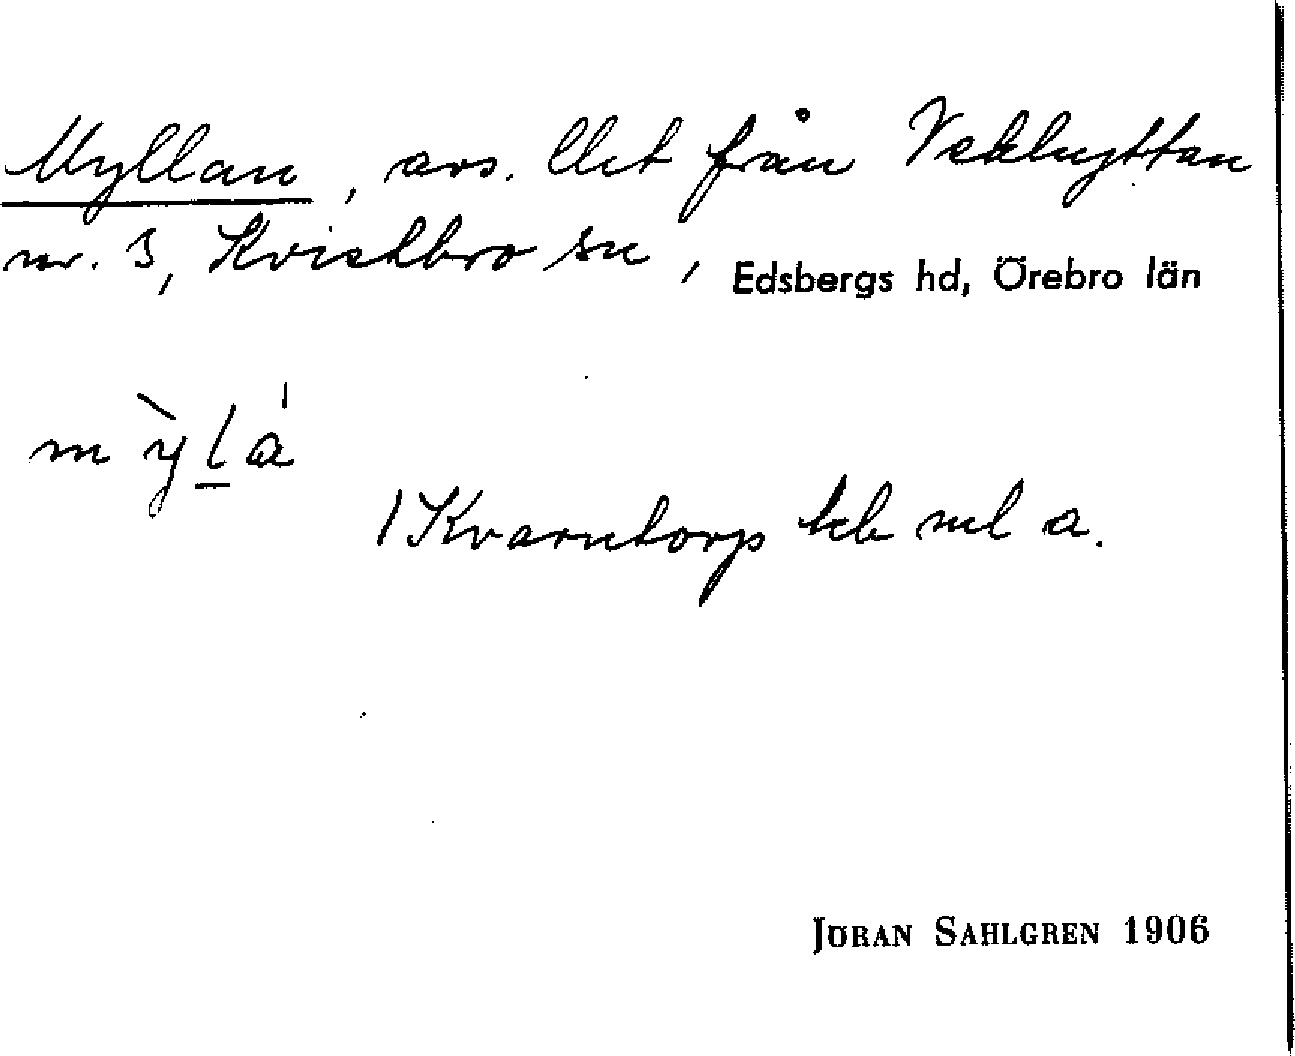 Myllan, avs. lht från Vekhyttan
nr. 3, Kvistbro sn, Edsbergs hd, Örebro län
m ỳ̖ l̲ a̍
1 Kvarntorp kb ml a.
JÖRAN SAHLGREN 1906